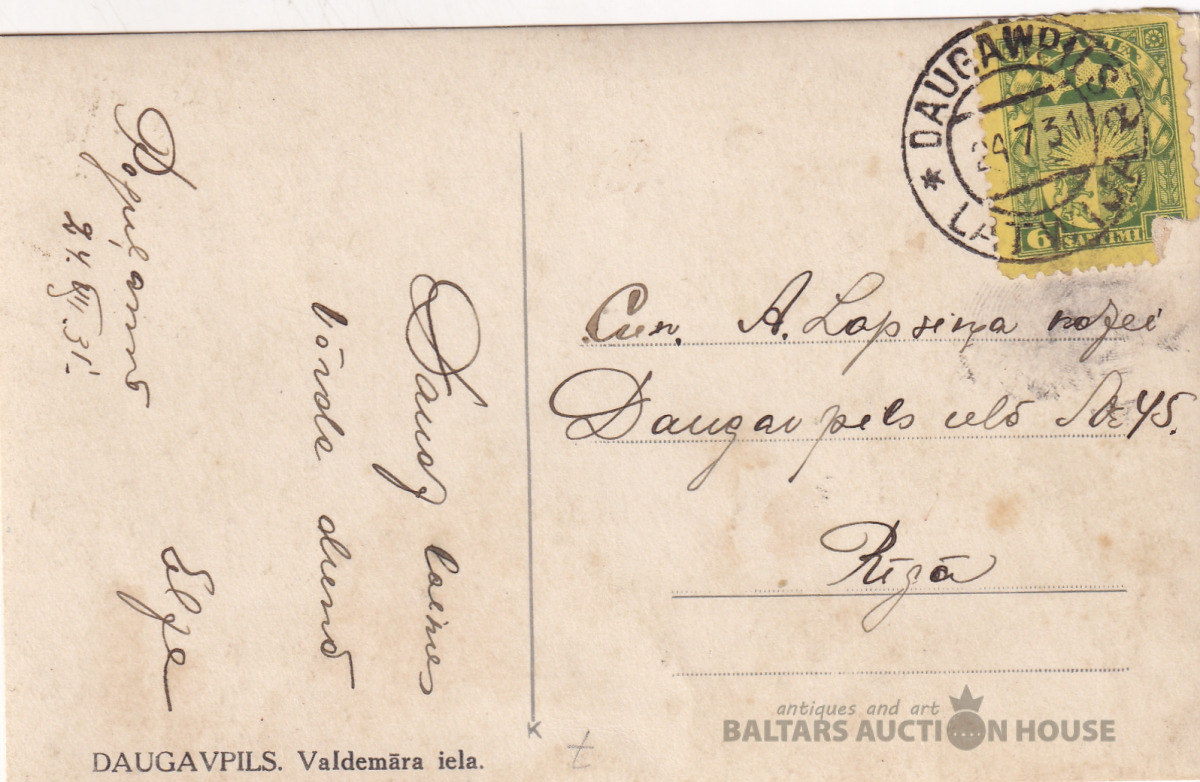 Daudz laimes
vārda dienā
Elza
Popiļamnā
24.VII.31.
Cien. A. Lapsiņa kdzei
Daugavpils ielā № 45.
Rīgā
DAUGAVPILS. Valdemāra iela.
DAUGAWPILS
24 7 31
LATVIJA
LATVIJA
6 SANTIMI
antiques and art
BALTARS AUCTION HOUSE